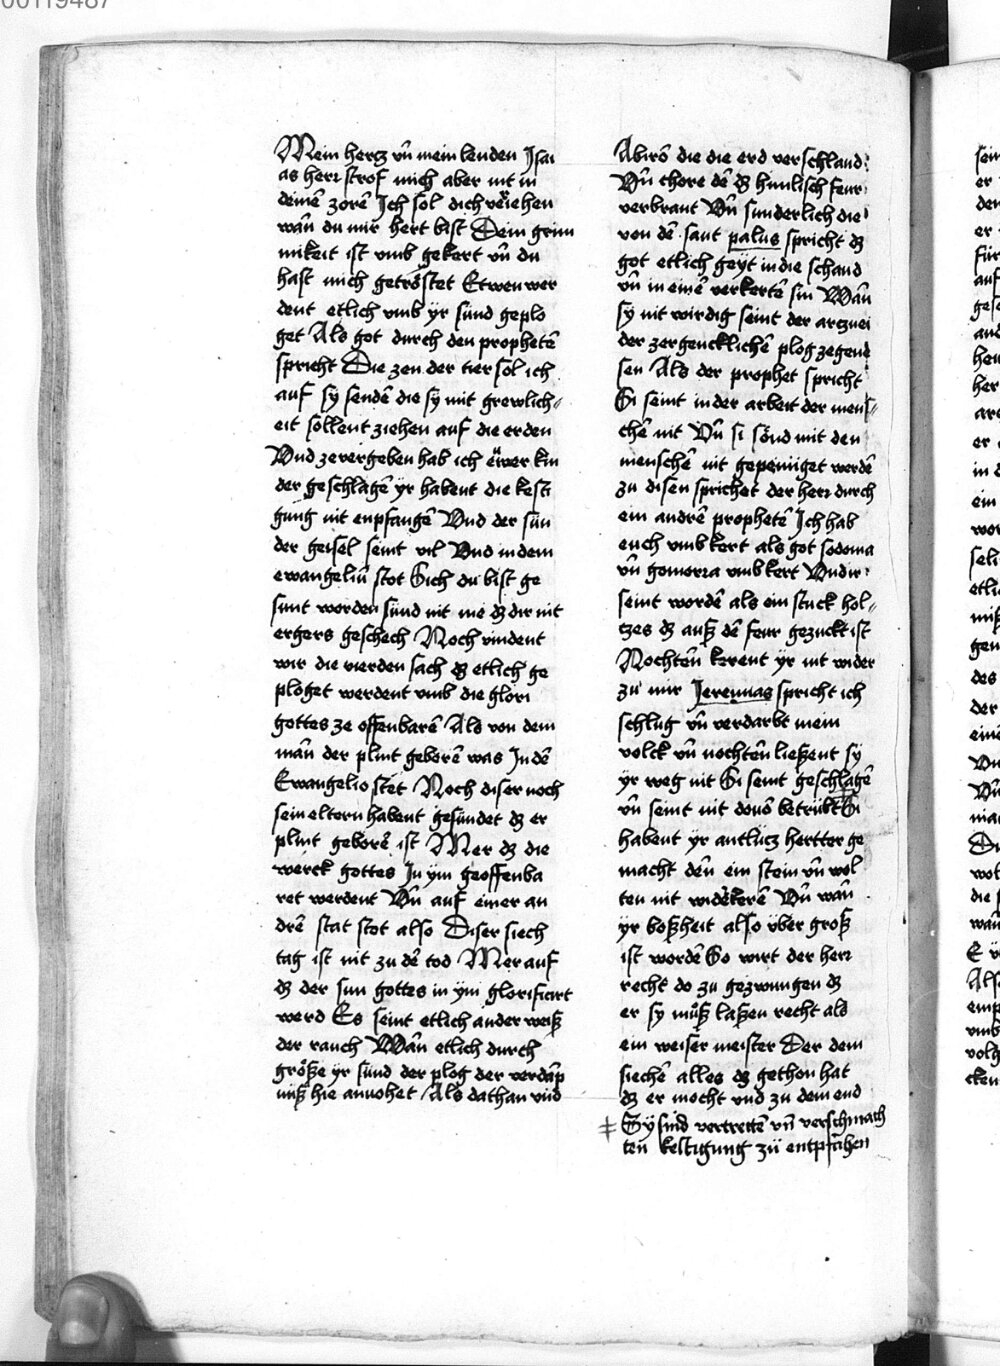 00119487
Mein hertz vn̄ mein lenden Jsai
as herr strof mich aber nit in
deinē zorē Jch sol dich veriehen
wān du mir hert bist Dein grim
mikeit ist vmb gekert vn̄ du
hast mich getröstet Etwen wer
dent etlich vmb yr sünd geplo
get Als got durch den prophetē
spricht Die zen der tier sol ich
auf sy sendē die sy mit grewlich⸗
eit söllent ziehen auf die erden
Vnd zevergeben hab ich ewer kin
der geschlagē yr habent die kesti
gung nit enpfangē Vnd der sün
der geisel seint vil Vnd in dem
ewangeliū stot Sich du bist ge
sunt worden sünd nit me dz dir nit
ergers geschech Noch vindent
wir die vierden sach dz etlich ge
ploget werdent vmb die glori
gottes ze offenbarē Als von dem
mān der plint geborē was Jn dē
Ewangelio stet Noch diser noch
sein eltern habent gesündet dz er
plint geborē ist Mer dz die
werck gottes Jn ym geoffenba
ret werdent Vn̄ auf einer an
drē stat stot also Diser siech
tag ist nit zu dē tod Mer auf
dz der sun gottes in ym glorificirt
werd Es seint etlich ander weiß
der rauch Wān etlich durch
größe yr sünd der plog der verdāp
nüß hie anuohet Als dathan vnd
Abirō die die erd verschland
Vn̄ chore dē dz himlisch feur
verbrant Vn̄ sunderlich die
von dē sant palus spricht dz
got etlich geyt in die schand
vn̄ in einē verkertē sin Wān
sy nit wirdig seint der arcznei
der zergencklichē plog ze gene
sen Als der prophet spricht
Si seint in der arbeit der mens⸗
chē nit Vn̄ si sönd mit den
menschē nit gepeiniget werdē
zu disen sprichet der herr durch
ein andrē prophetē Jch hab
euch vmb kert als got sodoma
vn̄ gomorra vmb kert Vnd ir
seint wordē als ein stuck hol⸗
tzes dz auß dē feur gezuckt ist
Nochten̄ kerent yr nit wider
zu mir Jeremias spricht ich
schlug vn̄ verdarbt mein
volck vn̄ nochten̄ ließent sy
yr weg nit Si seint geschlagē
vn̄ seint nit douō betrübt ⧧ Si
habent yr antlücz hertter ge
macht den̄ ein stein vn̄ wol
ten nit widerkerē Vn̄ wān
yr boßheit also über groß
ist wordē So wirt der herr
recht do zu gezwungen dz
er sy muͦß laßen recht als
ein weiser meister Der dem
siechē alles dz gethon hat
dz er mocht vnd zu dem end
⧧ Sy sind vertrettē vn̄ verschmach
ten kestigung zü entpfahen